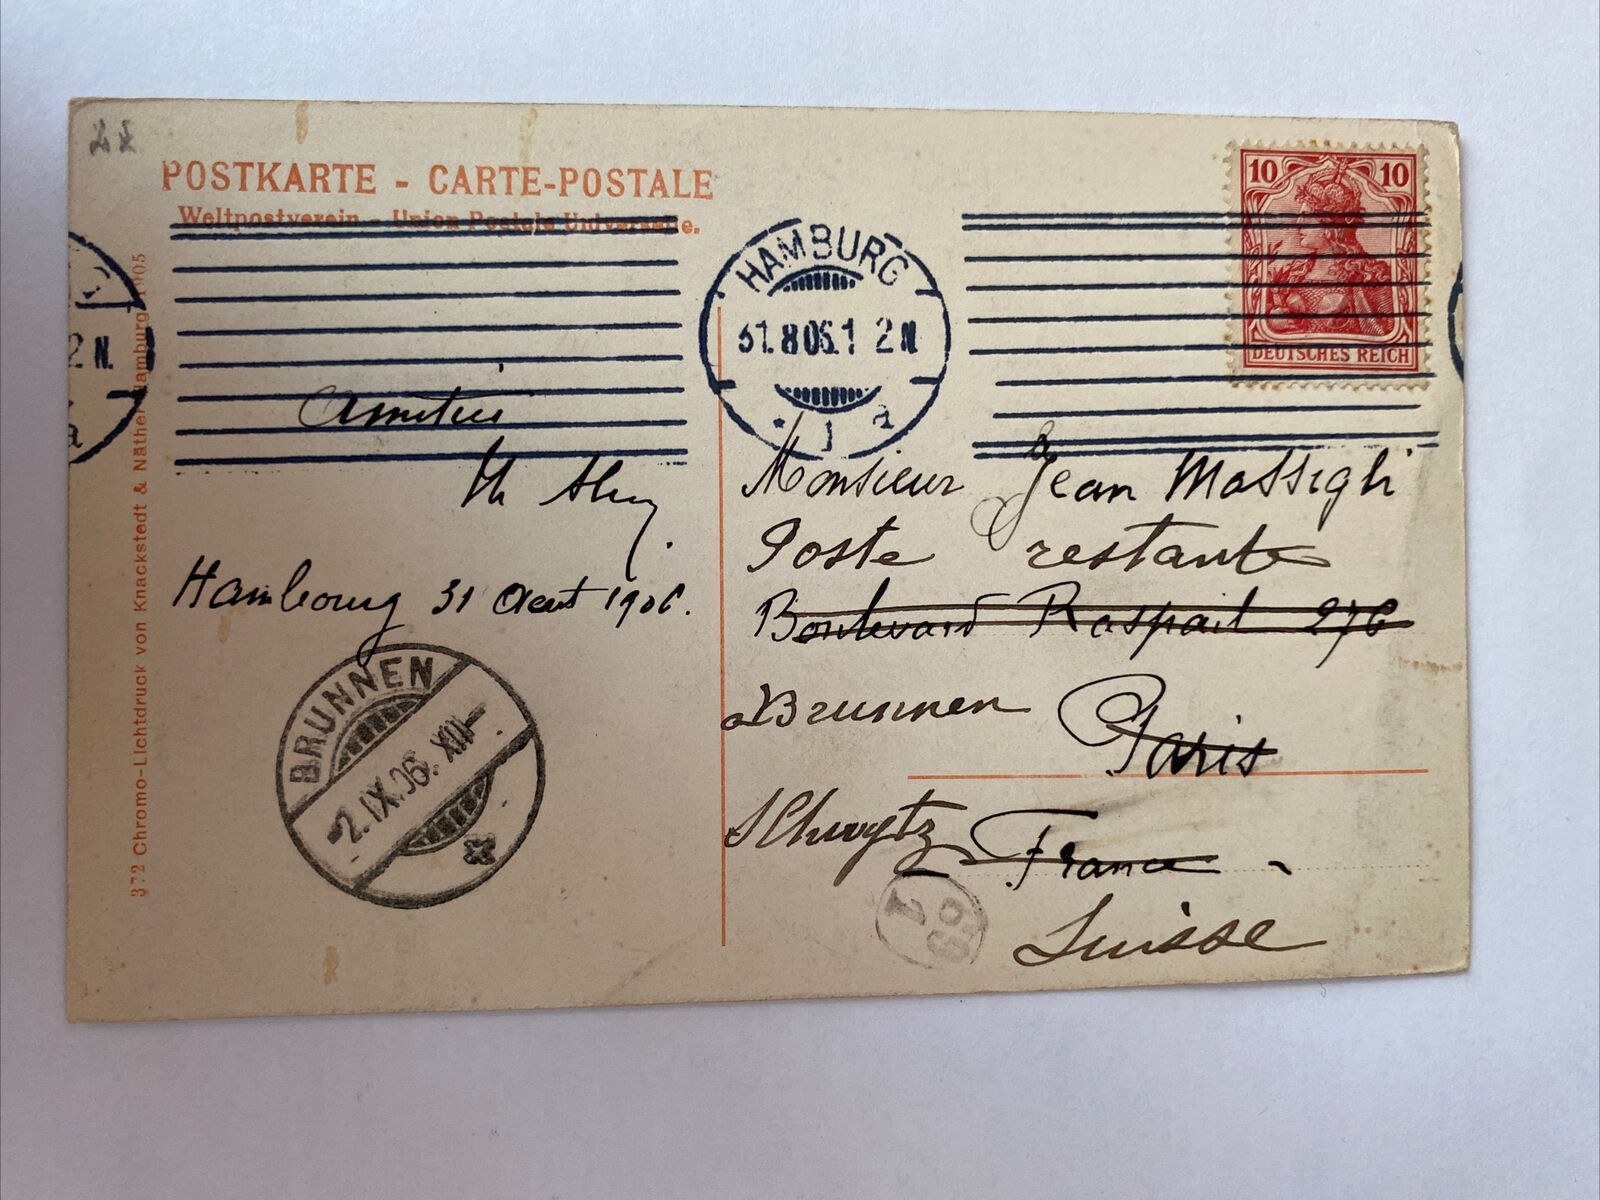 POSTKARTE - CARTE-POSTALE
Weltpostverein - Union Postale Universelle.
10 10
DEUTSCHES REICH
HAMBURG
31.8.06.1 2 N
1 a
2 N.
a
372 Chromo-Lichtdruck von Knackstedt & Näther Hamburg 1905
Amitiés
Th
Hambourg 31 Aout 1906.
BRUNNEN
-2.IX.06. XII-
Monsieur Jean Massigli
Poste restante
Boulevard Raspail 276
Brunnen
Paris
Schwytz
France
Suisse
69
1